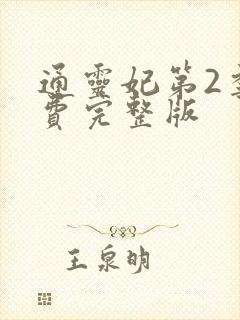 通靈妃第2季
費完整版
王泉明